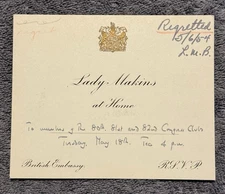 Regretted
15/6/54
L.M.B.
Lady Makins
at Home
To members of the 80th, 81st and 82nd Congress Clubs
Tuesday, May 18th, Tea 4 p.m.
British Embassy R.S.V.P.